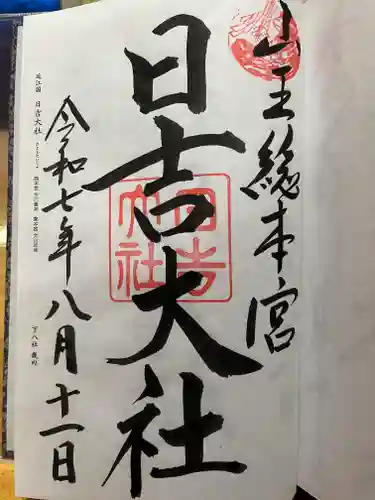 山王総本宮
日吉大社
日吉大社
令和七年八月十一日
近江国 日吉大社